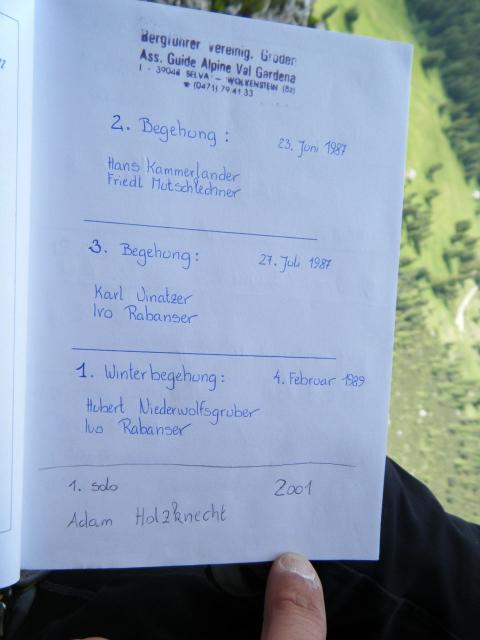 Bergführer Vereinig. Gröden
Ass. Guide Alpine Val Gardena
I - 39048 SELVA - WOLKENSTEIN (Bz)
☎ (0471) 79 41 33
2. Begehung : 23. Juni 1987
Hans Kammerlander
Friedl Mutschlechner
3. Begehung : 27. Juli 1987
Karl Vinatzer
Ivo Rabanser
1. Winterbegehung : 4. Februar 1989
Hubert Niederwolfsgruber
Ivo Rabanser
1. solo 2001
Adam Holzknecht